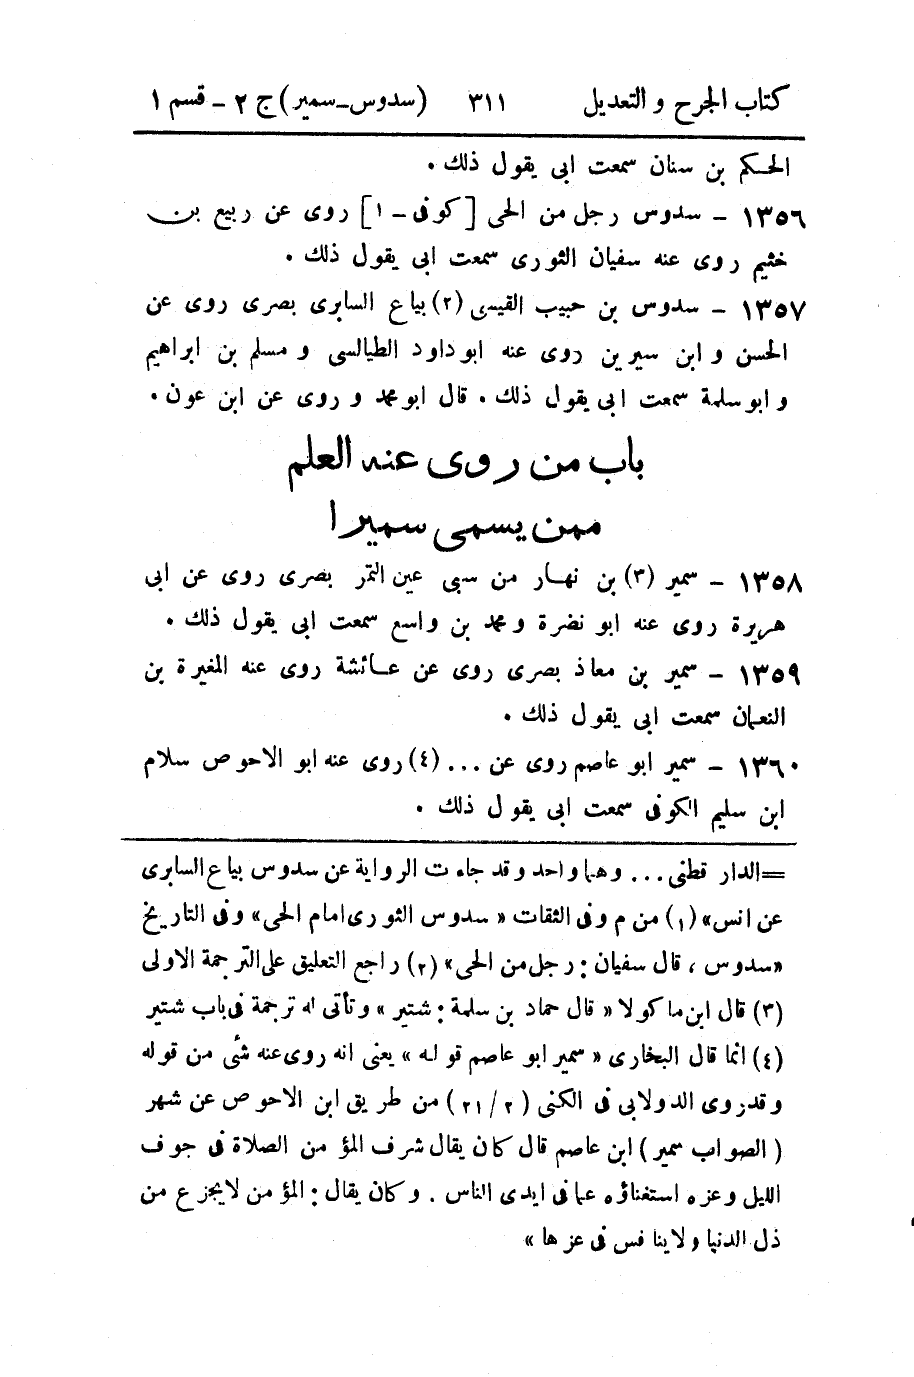 كتاب الجرح و التعديل ٣١١ (سدوس-سمير) ج ٢ - قسم ١
الحكم بن سنان سمعت ابى يقول ذلك .
١٣٥٦ - سدوس رجل من الحى [كوفى - ١] روى عن ربيع بن
خثيم روى عنه سفيان الثورى سمعت ابى يقول ذلك .
١٣٥٧ - سدوس بن حبيب القيسى (٢) بياع السابرى بصرى روى عن
الحسن و ابن سيرين روى عنه ابو داود الطيالسى و مسلم بن ابراهيم
و ابو سلمة سمعت ابى يقول ذلك . قال ابو محمد و روى عن ابن عون .
باب من روى عنه العلم
ممن يسمى سميرا
١٣٥٨ - سمير (٣) بن نهار من سبى عين التمر بصرى روى عن ابى
هريرة روى عنه ابو نضرة و محمد بن واسع سمعت ابى يقول ذلك .
١٣٥٩ - سمير بن معاذ بصرى روى عن عائشة روى عنه المغيرة بن
النعمان سمعت ابى يقول ذلك .
١٣٦٠ - سمير ابو عاصم روى عن ... (٤) روى عنه ابو الاحوص سلام
ابن سليم الكوفى سمعت ابى يقول ذلك .
=الدار قطنى ... وهما واحد و قد جاءت الرواية عن سدوس بياع السابرى
عن انس» (١) من م و فى الثقات « سدوس الثورى امام الحى» و فى التاريخ
«سدوس ، قال سفيان : رجل من الحى» (٢) راجع التعليق على الترجمة الاولى
(٣) قال ابن ماكولا « قال حماد بن سلمة : شتير » و تأتى له ترجمة فى باب شتير
(٤) انما قال البخارى « سمير ابو عاصم قوله » يعنى انه روى عنه شئى من قوله
و قد روى الدولابى فى الكنى ( ٢ / ٢١ ) من طريق ابن الاحوص عن شهر
( الصواب سمير ) ابن عاصم قال كان يقال شرف المؤمن الصلاة فى جوف
الليل و عزه استغناؤه عما فى ايدى الناس . و كان يقال : المؤمن لا يجزع من
ذل الدنيا و لا ينافس فى عزها »